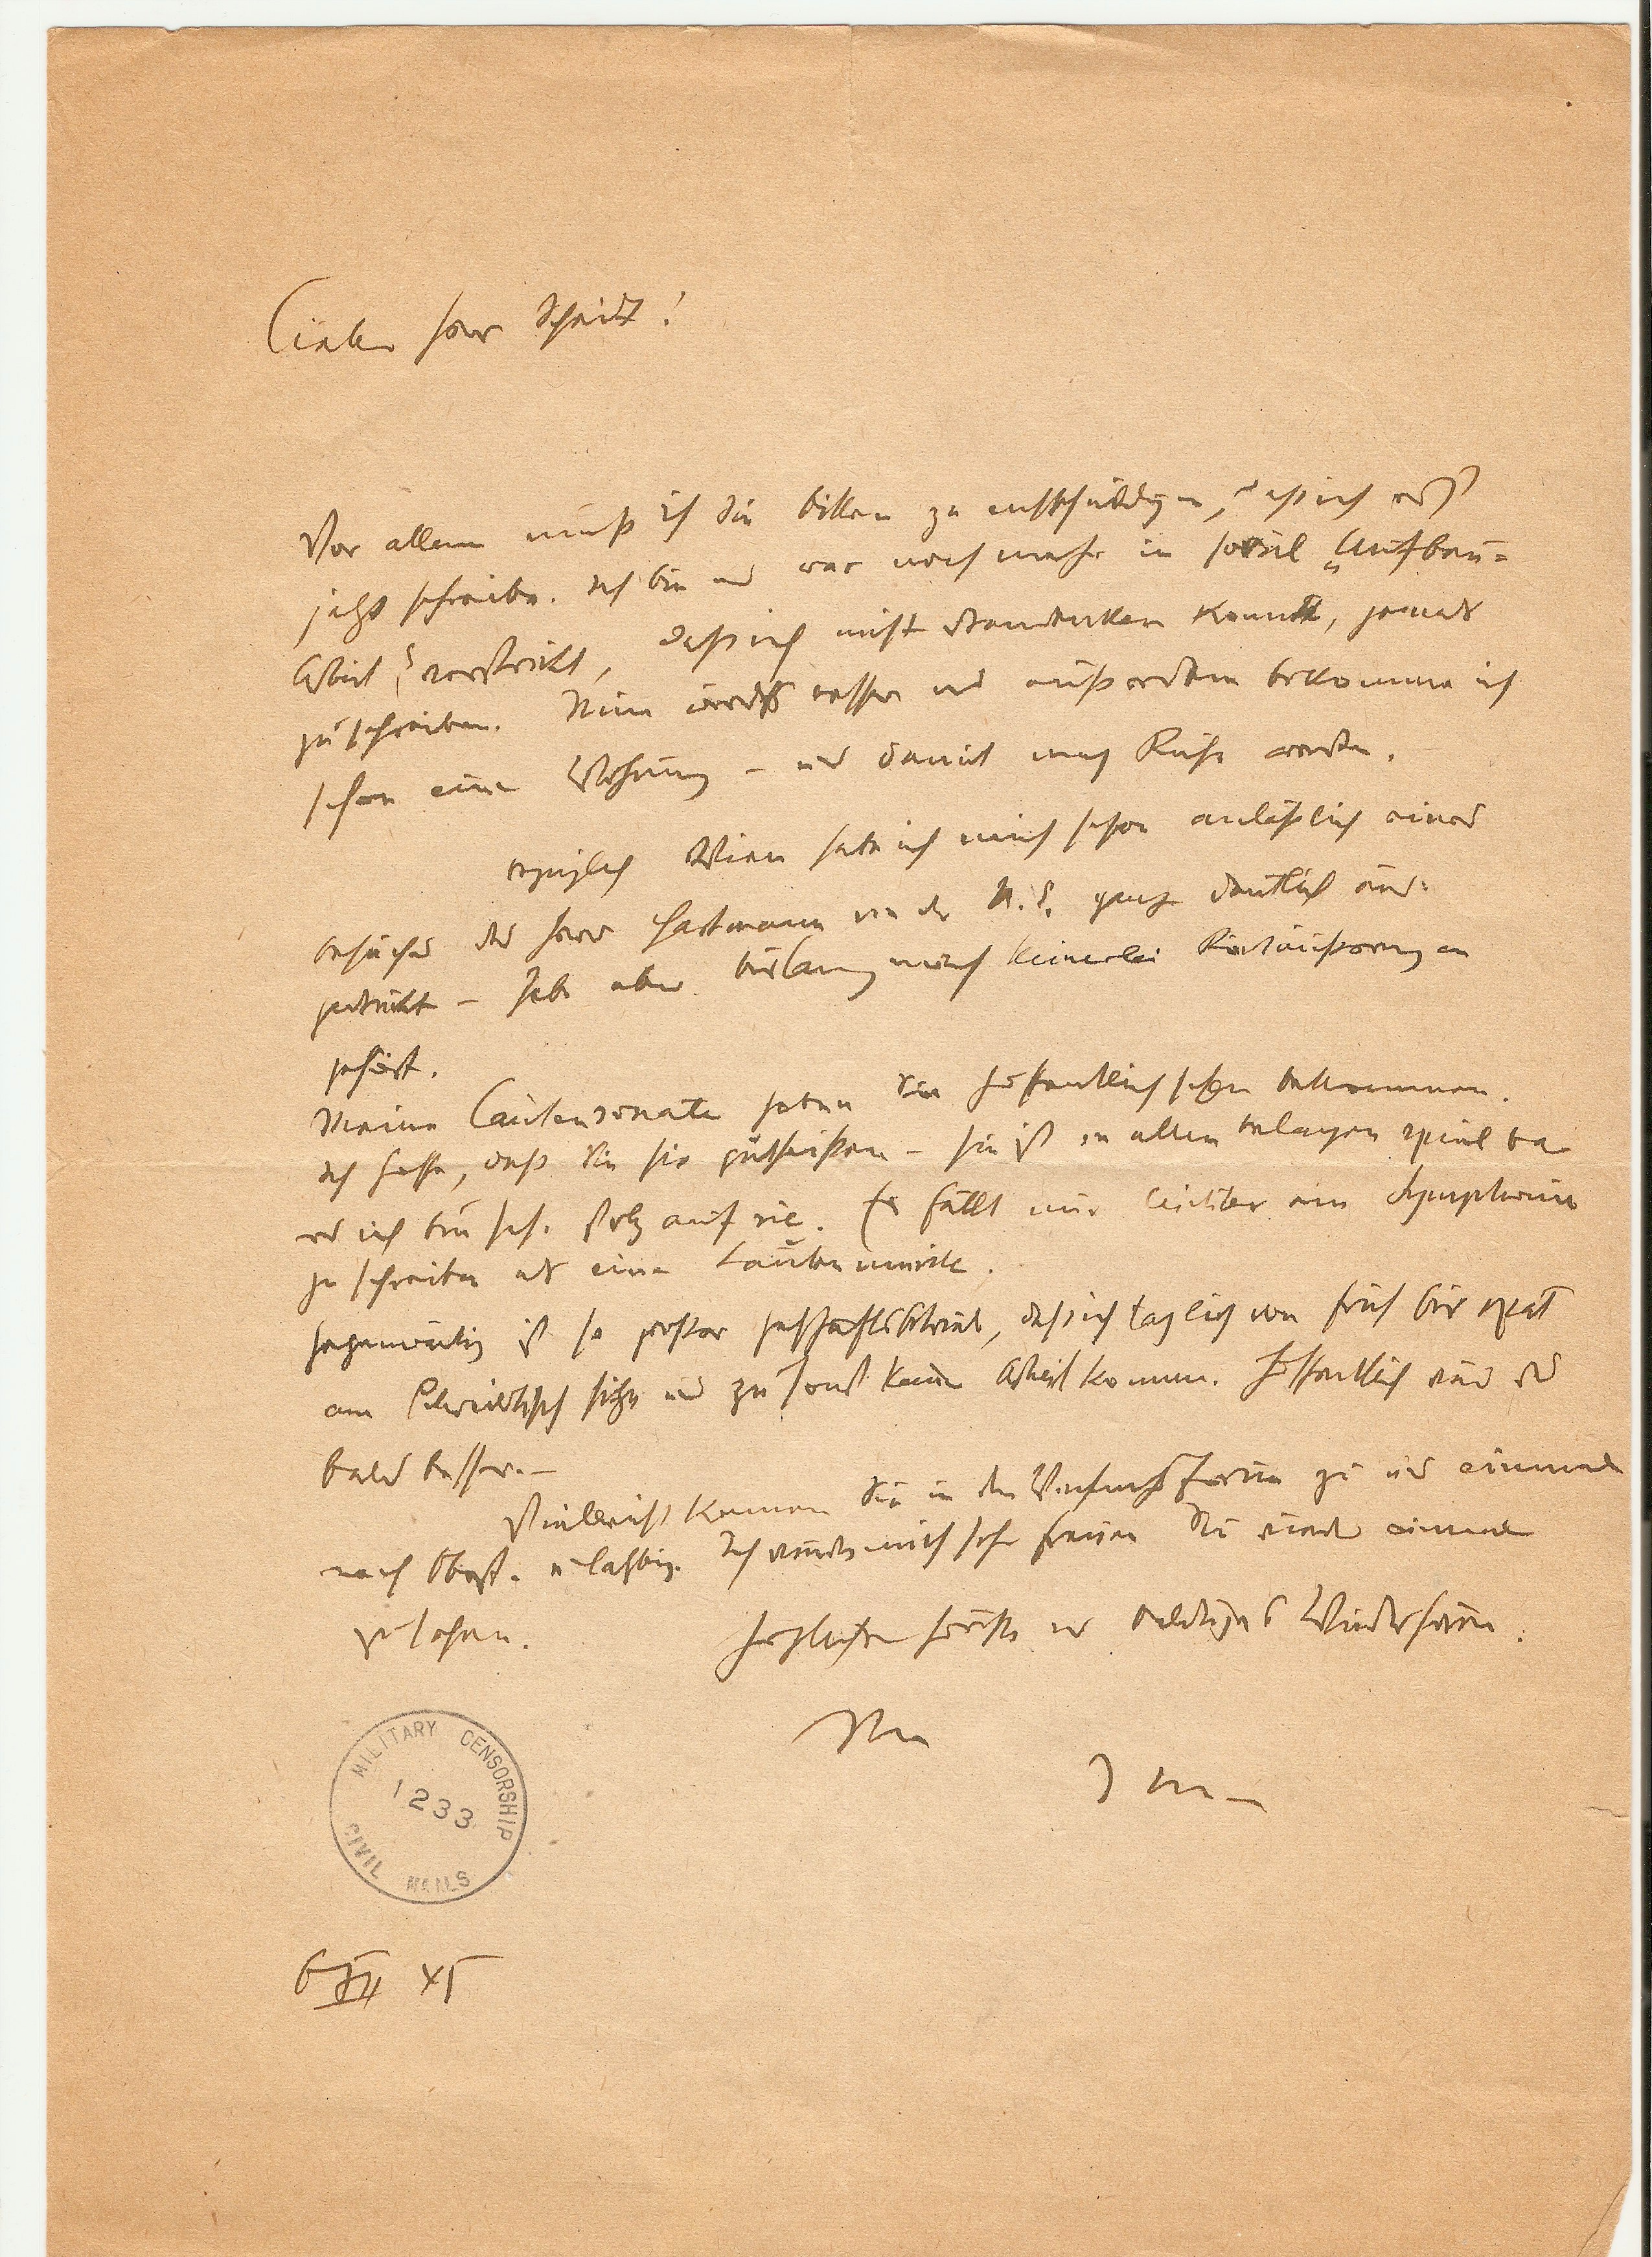 Lieber Herr Scheit!
Vor allem muß ich Sie bitten zu entschuldigen, daß ich erst
jetzt schreibe. Ich bin und war noch mehr in soviel „Aufbau-
Arbeit" verstrickt, daß ich nicht daran denken konnte, jemand
zu schreiben. Nun wirds besser und außerdem bekomme ich
schon eine Wohnung – und damit mag Ruhe werden.
Bezüglich Wien habe ich mich schon anläßlich eines
Besuches des Herrn Hartmann von der U.E. ganz deutlich aus-
gedrückt – habe aber bislang noch keinerlei Rückäußerungen
gehört.
Meine Lautensonate haben Sie hoffentlich schon bekommen.
Ich hoffe, daß Sie sie gutheißen – sie ist in allen Belangen spielbar
und ich bin sehr stolz auf sie. Es fällt mir leichter eine Symphonie
zu schreiben als eine Lautenmusik.
Gegenwärtig ist so großer Geschäftsbetrieb, daß ich täglich von früh bis spät
am Schreibtisch sitze und zu sonst keiner Arbeit komme. Hoffentlich wird es
bald besser. –
Vielleicht kommen Sie in den Weihnachtsferien zu uns einmal
nach Salzbg. Ich würde mich sehr freuen Sie wieder einmal
zu sehen.
Herzlichste Grüße und baldiges Wiedersehen.
Ihr
MILITARY CENSORSHIP
1233
CIVIL MAILS
6 XII 45